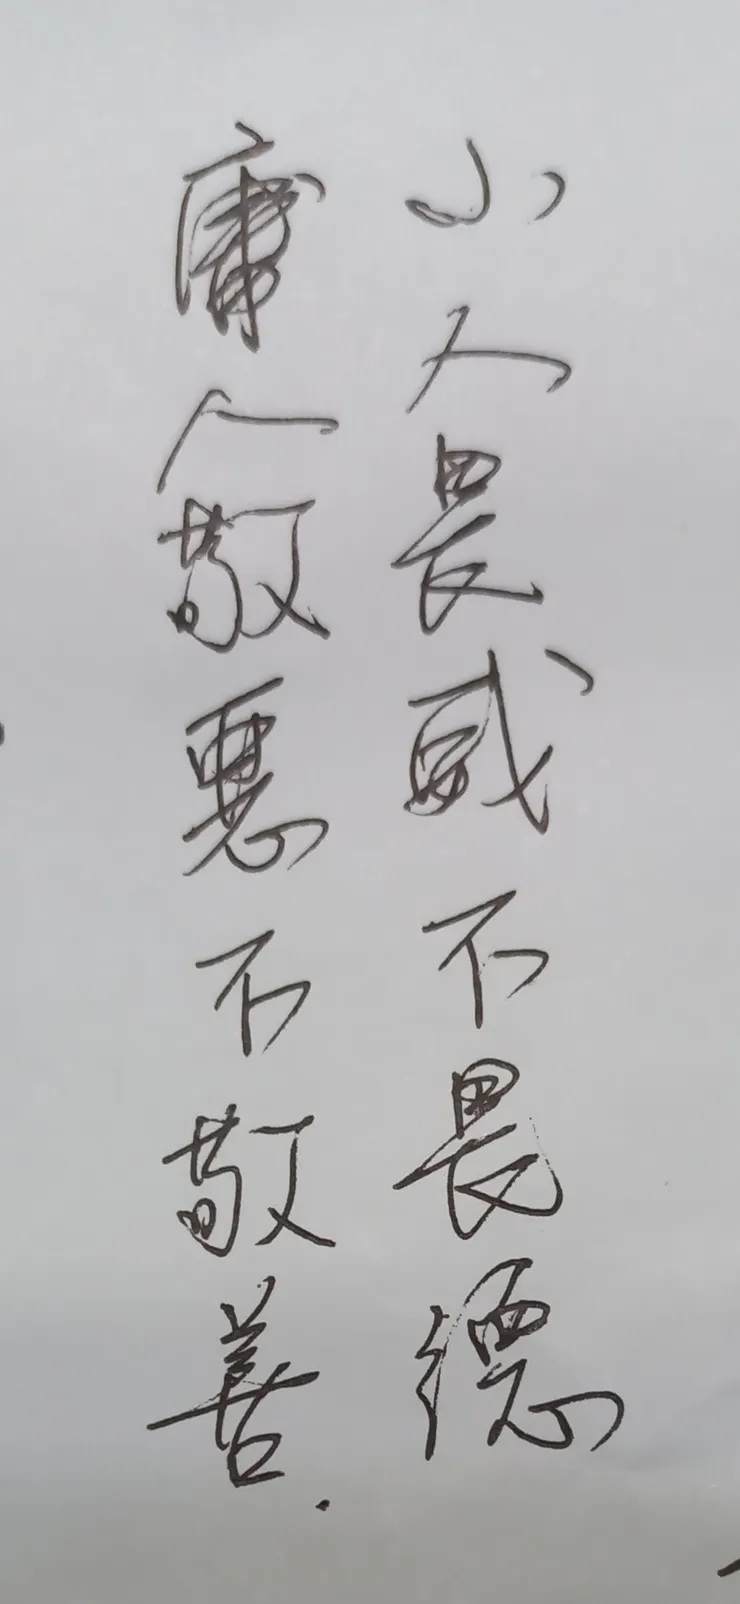 小人畏威不畏德
庸人敬恶不敬善.